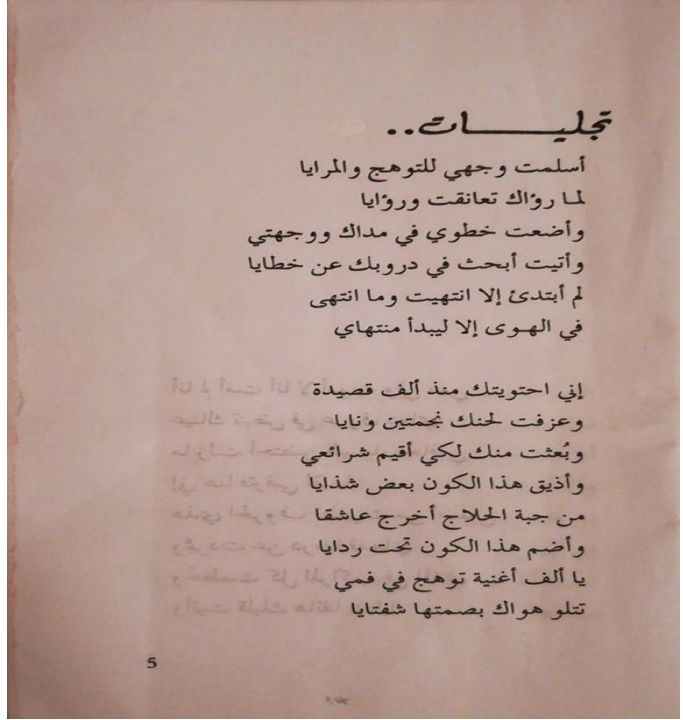 تجليات..
أسلمت وجهي للتوهج والمرايا
لما رؤاك تعانقت ورؤايا
وأضعت خطوي في مداك ووجهتي
وأتيت أبحث في دروبك عن خطايا
لم أبتدئ إلا انتهيت وما انتهى
في الهوى إلا ليبدأ منتهاي
إني احتويتك منذ ألف قصيدة
وعزفت لحنك نجمتين ونايا
وبُعثت منك لكي أقيم شرائعي
وأذيق هذا الكون بعض شذايا
من جبة الحلاج أخرج عاشقا
وأضم هذا الكون تحت ردايا
يا ألف أغنية توهج في فمي
تتلو هواك بصمتها شفتايا
5